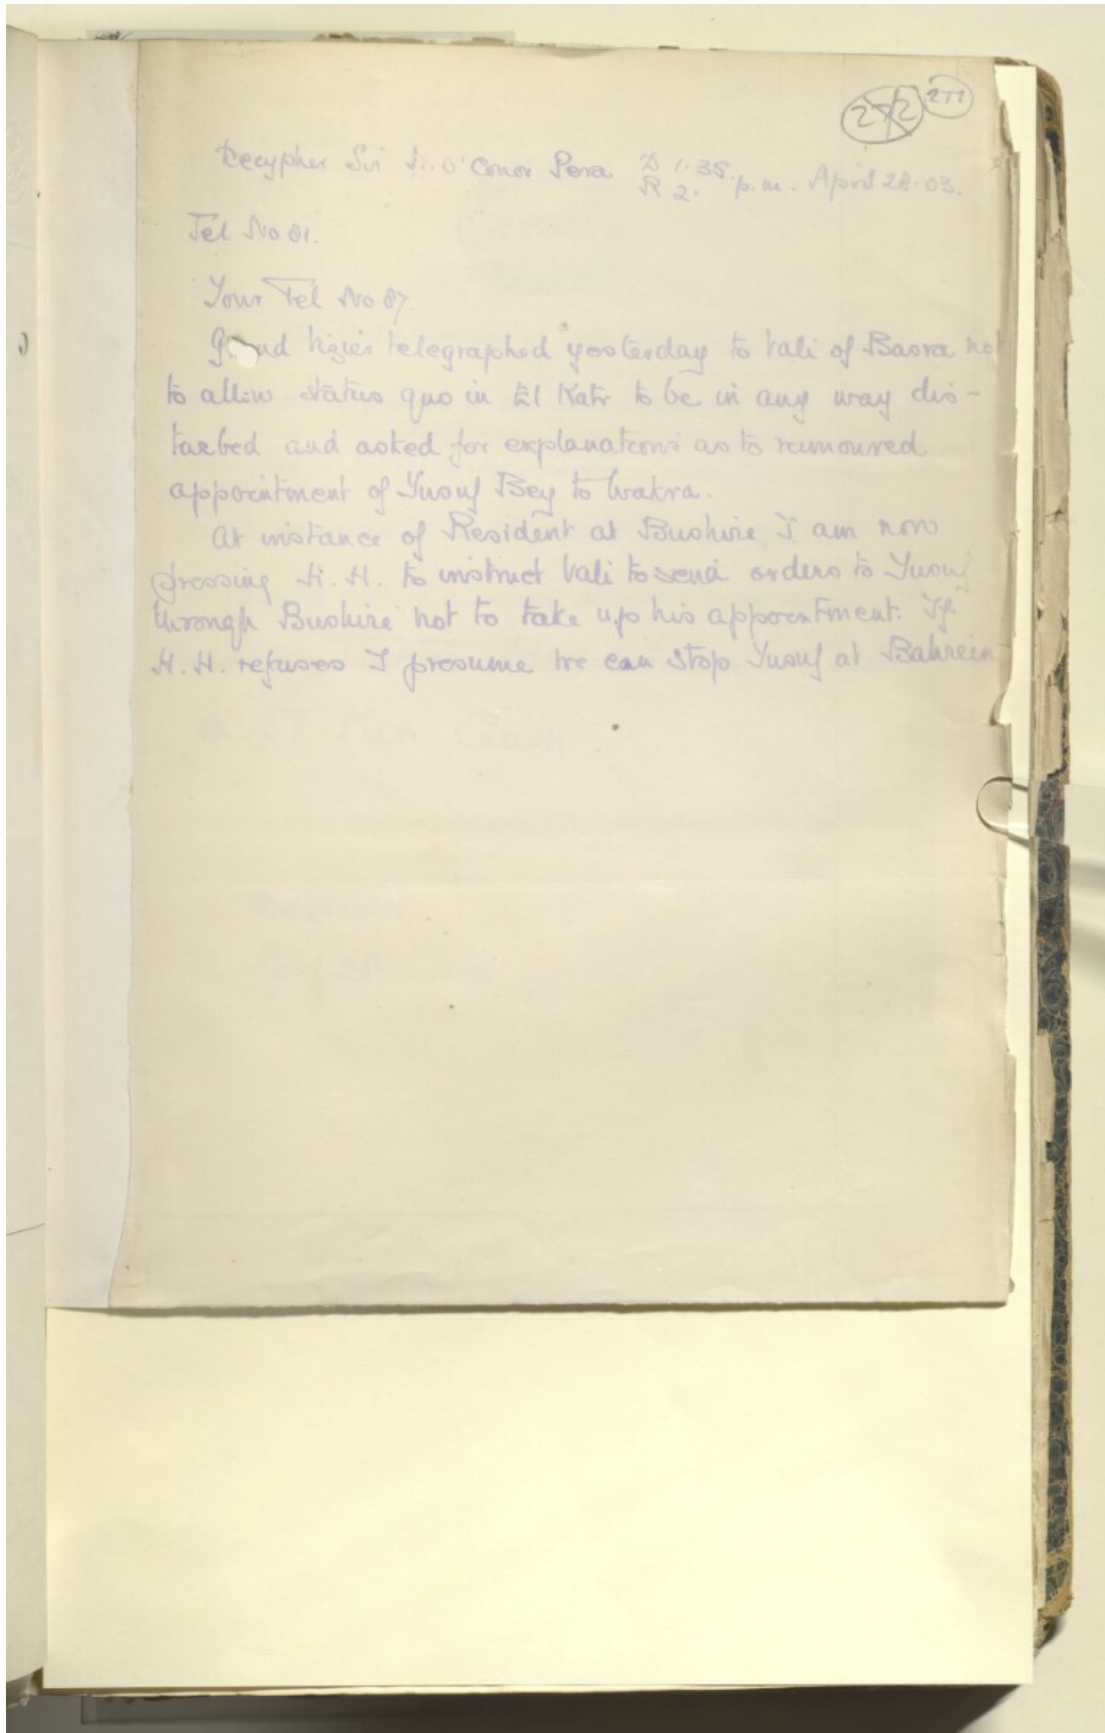 272 271
Decypher Sir N. O'Conor Pera D 1.35. R 2. p.m. April 28.03.
Tel No 81.
Your Tel No 87.
Grand Vizier telegraphed yesterday to Vali of Basra not
to allow status quo in El Katr to be in any way dis-
turbed and asked for explanations as to rumoured
appointment of Yusuf Bey to Wakra.
At instance of Resident at Bushire I am now
pressing H. H. to instruct Vali to send orders to Yusuf
through Bushire not to take up his appointment. If
H. H. refuses I presume we can stop Yusuf at Bahrein